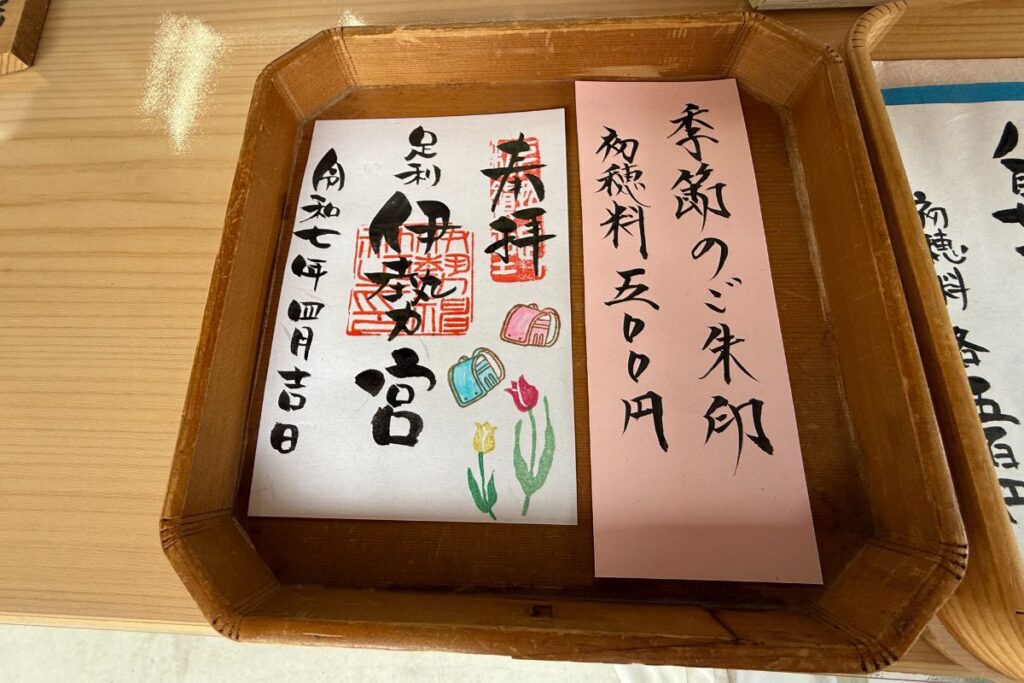 奉拝
足利
伊勢宮
令和七年四月吉日
季節のご朱印
初穂料五〇〇円
初穂料 各五百円